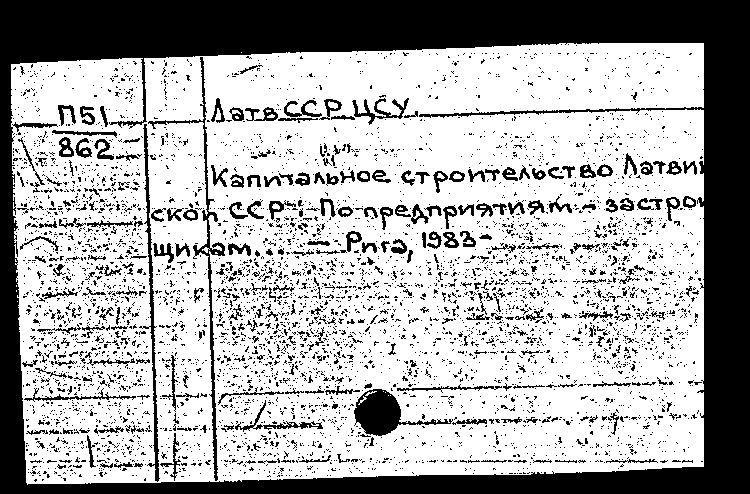 П51
862
Латв ССР ЦСУ.
Капитальное строительство Латвий
ской ССР : По предприятиям - застрой
щикам... — Рига, 1983-